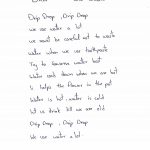 Drip Drop, Drip Drop
We use water a lot
we must be careful not to waste
water when we use toothpaste
Try to conserve water but
Water and down when we are hot
It helps the flowers in the pot
Water is hot, water is cold
let us drink till we are old
Drip Drop, Drip Drop
We use water a lot.